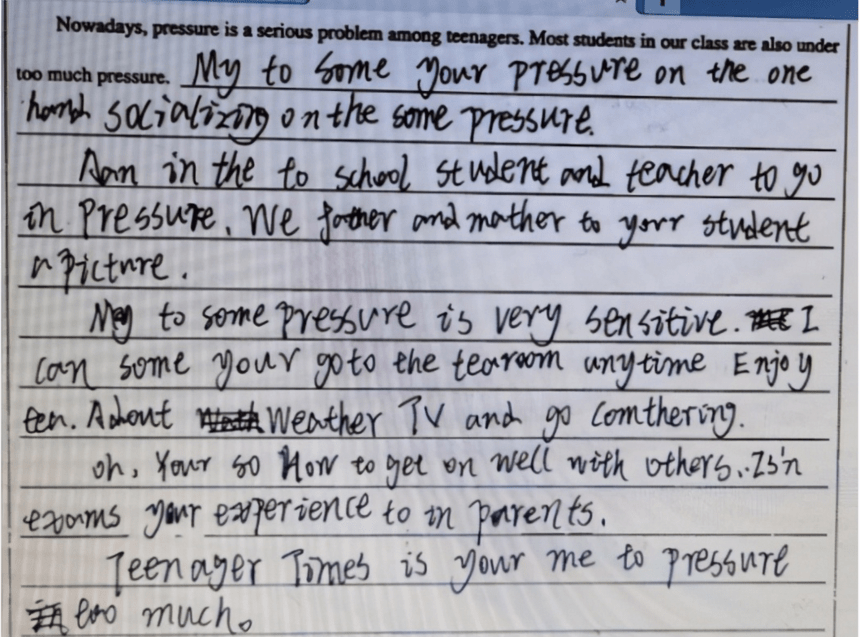 Nowadays, pressure is a serious problem among teenagers. Most students in our class are also under
too much pressure. My to some your pressure on the one
hand socializing on the some pressure.
Aan in the to school student and teacher to go
in pressure. We father and mather to yorr student
a picture.
May to some pressure is very sensitive. I
can some your goto the tearoom anytime Enjoy
ten. Adout Weather TV and go Comthering.
oh, Your so How to get on well with others. Is'n
exams your experience to in parents.
Teenager Times is your me to pressure
too much.